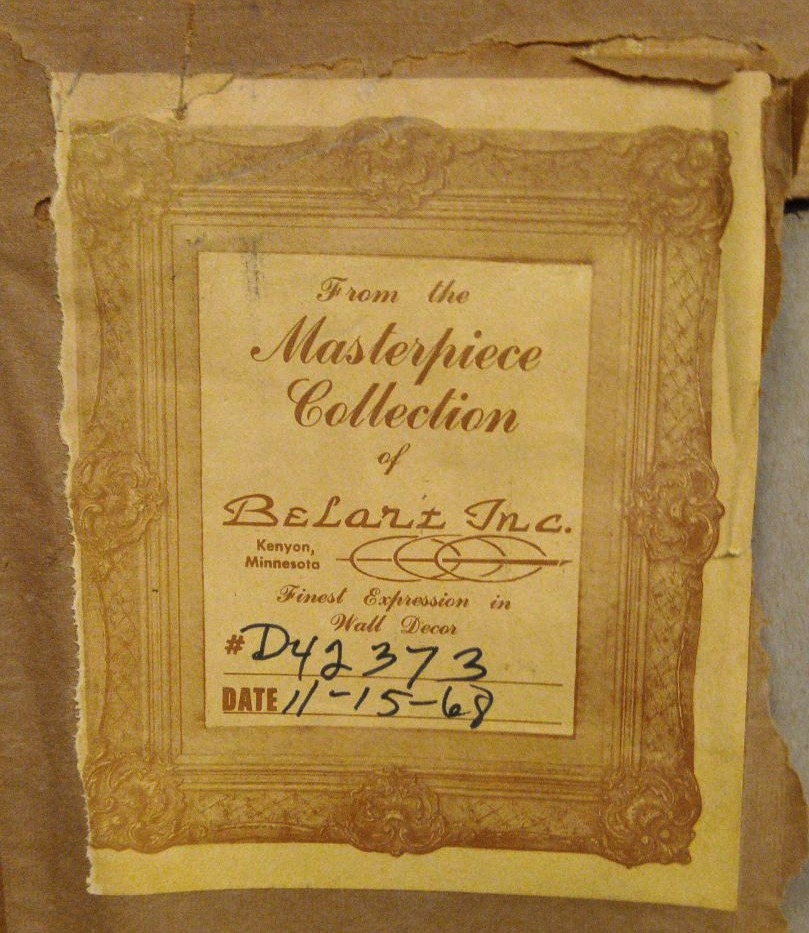 From the
Masterpiece
Collection
of
BELart Inc.
Kenyon,
Minnesota
Finest Expression in
Wall Decor
# D42373
DATE 11-15-68